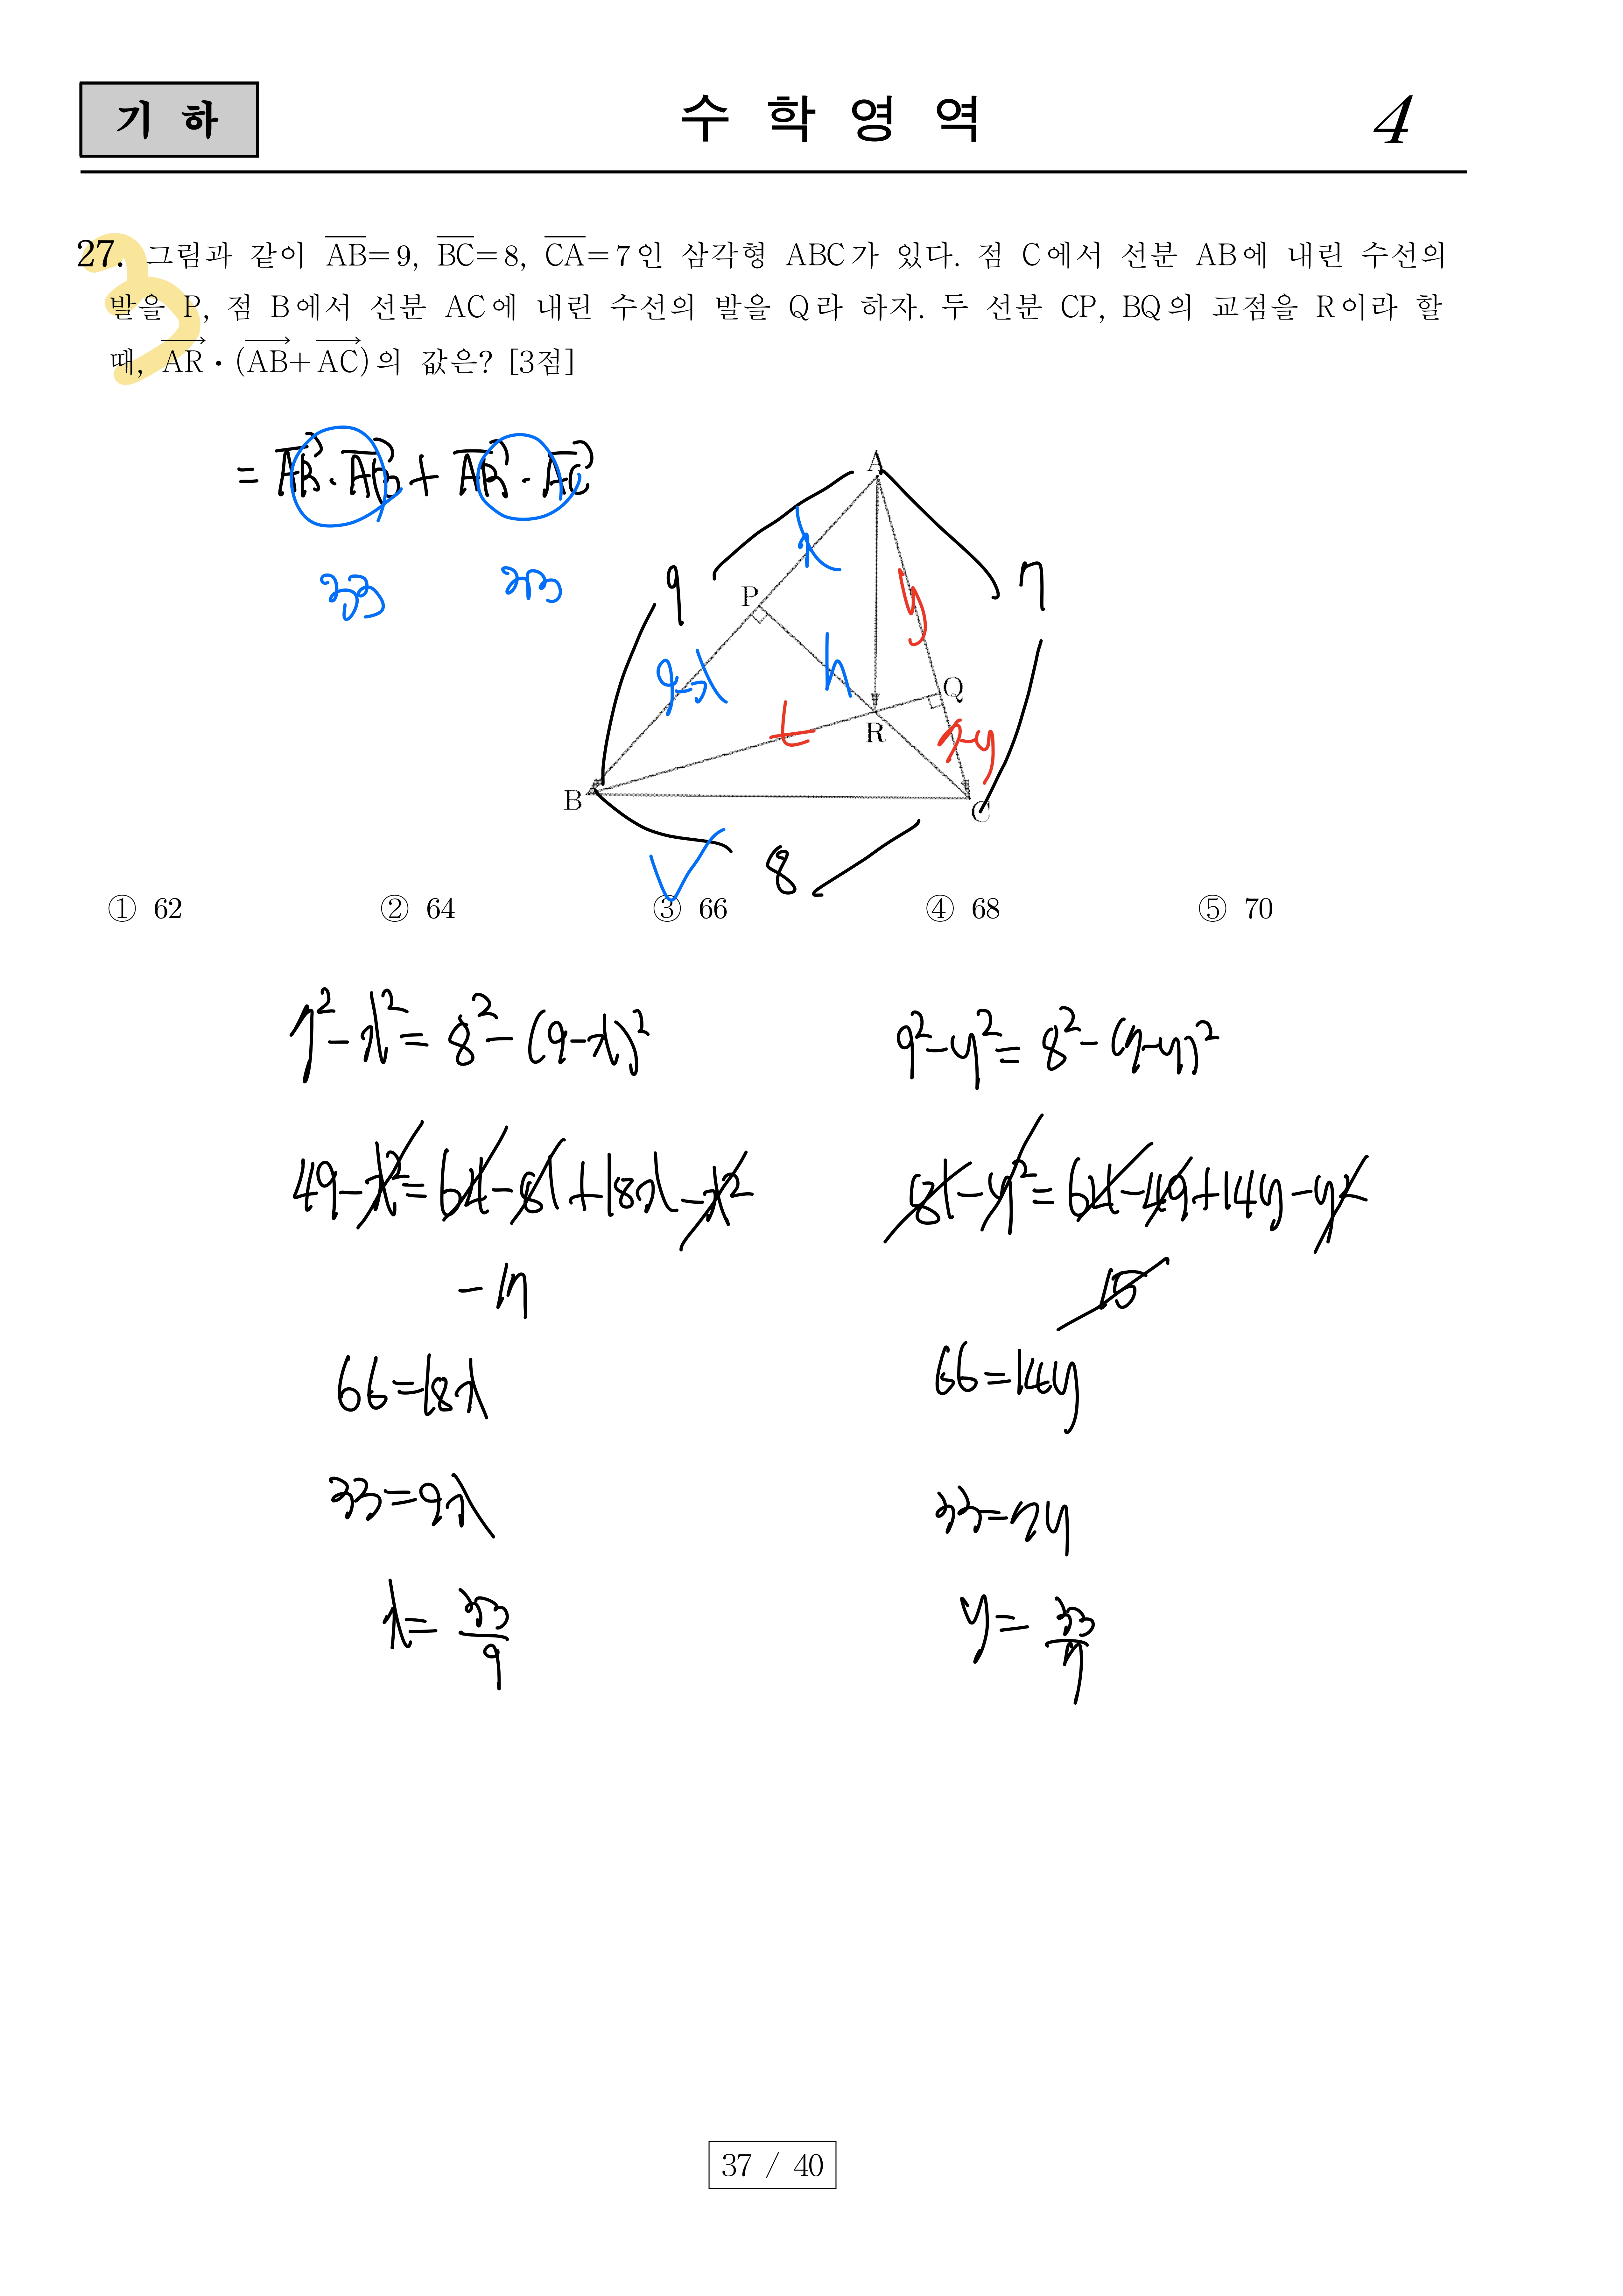 기 하
수 학 영 역
4
27. 그림과 같이 AB=9, BC=8, CA=7인 삼각형 ABC가 있다. 점 C에서 선분 AB에 내린 수선의
발을 P, 점 B에서 선분 AC에 내린 수선의 발을 Q라 하자. 두 선분 CP, BQ의 교점을 R이라 할
때, AR·(AB+AC)의 값은? [3점]
3
= AR·AB + AR·AC
33 33
A
x
9 7
P
y
9-x h
Q
t
R
7-y
B C
8
① 62 ② 64 ③ 66 ④ 68 ⑤ 70
7²-x²=8²-(9-x)² 9²-y²=8²-(7-y)²
49-x²=64-81+18x-x² 81-y²=64-49+14y-y²
-17 15
66=18x 66=14y
33=9x 33=7y
x=33/9 y=33/7
37 / 40